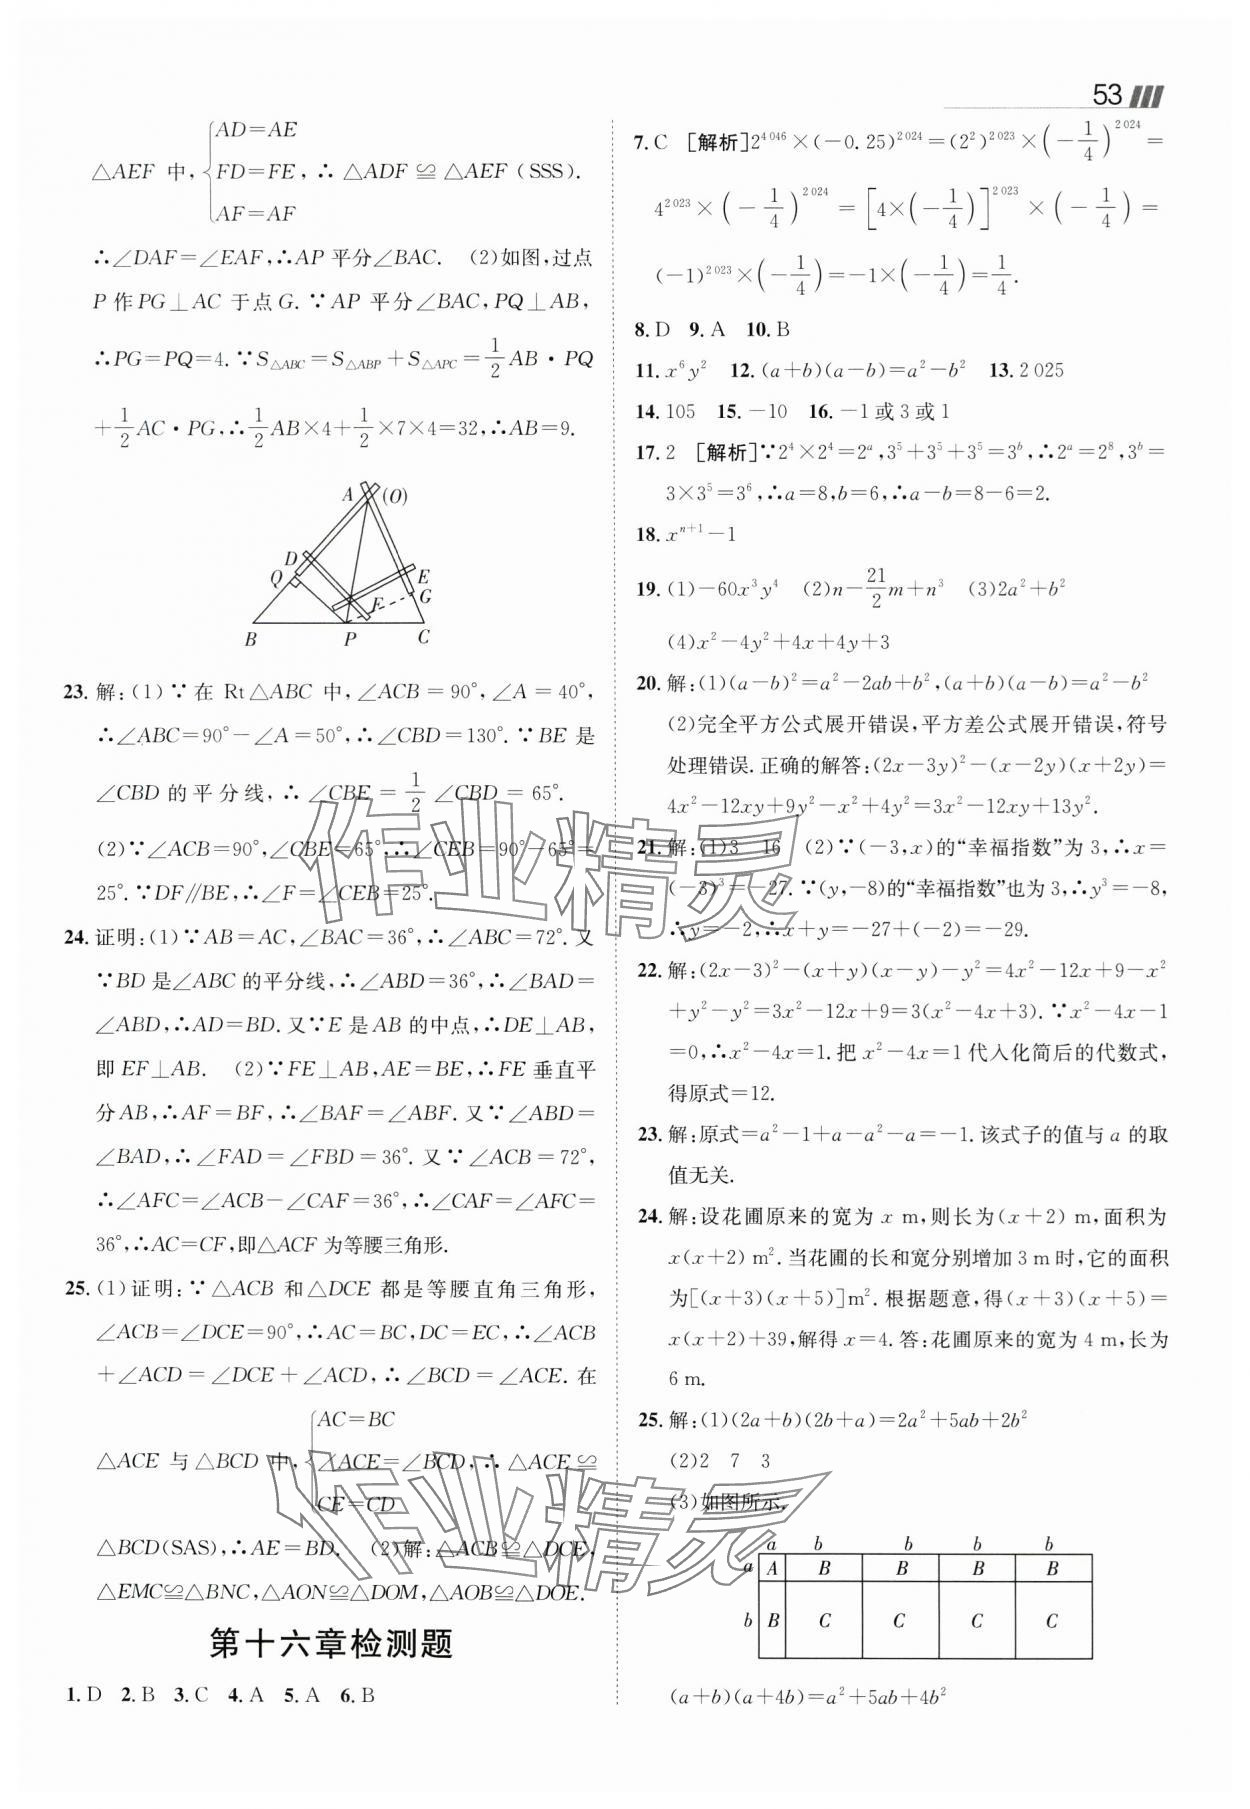 53
△AEF 中,{AD=AE
FD=FE, ∴ △ADF ≌ △AEF (SSS).
AF=AF
∴∠DAF=∠EAF,∴AP 平分∠BAC. (2)如图,过点
P 作 PG⊥AC 于点 G. ∵ AP 平分∠BAC, PQ⊥AB,
∴PG=PQ=4. ∵S△ABC=S△ABP+S△APC=1/2 AB·PQ
+1/2 AC·PG,∴1/2 AB×4+1/2×7×4=32,∴AB=9.
A (O)
D
Q
E
G
F
B P C
23. 解:(1) ∵ 在 Rt△ABC 中,∠ACB=90°,∠A=40°,
∴∠ABC=90°-∠A=50°,∴∠CBD=130°. ∵BE 是
∠CBD 的平分线, ∴ ∠CBE = 1/2 ∠CBD = 65°.
(2)∵∠ACB=90°,∠CBE=65°,∴∠CEB=90°-65°=
25°. ∵DF∥BE,∴∠F=∠CEB=25°.
24. 证明:(1)∵AB=AC,∠BAC=36°,∴∠ABC=72°. 又
∵BD 是∠ABC 的平分线,∴∠ABD=36°,∴∠BAD=
∠ABD,∴AD=BD. 又∵E 是 AB 的中点,∴DE⊥AB,
即 EF⊥AB. (2)∵FE⊥AB,AE=BE,∴FE 垂直平
分 AB,∴AF=BF,∴∠BAF=∠ABF. 又∵∠ABD=
∠BAD,∴∠FAD=∠FBD=36°. 又∵∠ACB=72°,
∴∠AFC=∠ACB-∠CAF=36°,∴∠CAF=∠AFC=
36°,∴AC=CF,即△ACF 为等腰三角形.
25. (1)证明:∵△ACB 和△DCE 都是等腰直角三角形,
∠ACB=∠DCE=90°,∴AC=BC,DC=EC,∴∠ACB
+∠ACD=∠DCE+∠ACD,∴∠BCD=∠ACE. 在
△ACE 与△BCD 中,{AC=BC
∠ACE=∠BCD,∴△ACE≌
CE=CD
△BCD(SAS),∴AE=BD. (2)解:△ACB≌△DCE,
△EMC≌△BNC,△AON≌△DOM,△AOB≌△DOE.
第十六章检测题
1. D 2. B 3. C 4. A 5. A 6. B
7. C [解析]2^4 046×(-0. 25)^2 024=(2²)^2 023×(-1/4)^2 024=
4^2 023×(-1/4)^2 024=[4×(-1/4)]^2 023×(-1/4)=
(-1)^2 023×(-1/4)=-1×(-1/4)=1/4.
8. D 9. A 10. B
11. x⁶y² 12. (a+b)(a-b)=a²-b² 13. 2 025
14. 105 15. -10 16. -1 或 3 或 1
17. 2 [解析]∵2⁴×2⁴=2^a,3⁵+3⁵+3⁵=3^b,∴2^a=2⁸,3^b=
3×3⁵=3⁶,∴a=8,b=6,∴a-b=8-6=2.
18. x^(n+1)-1
19. (1)-60x³y⁴ (2)n-21/2 m+n³ (3)2a²+b²
(4)x²-4y²+4x+4y+3
20. 解:(1)(a-b)²=a²-2ab+b²,(a+b)(a-b)=a²-b²
(2)完全平方公式展开错误,平方差公式展开错误,符号
处理错误. 正确的解答:(2x-3y)²-(x-2y)(x+2y)=
4x²-12xy+9y²-x²+4y²=3x²-12xy+13y².
21. 解:(1)3 16 (2)∵(-3,x)的“幸福指数”为 3,∴x=
(-3)³=-27. ∵(y,-8)的“幸福指数”也为 3,∴y³=-8,
∴y=-2,∴x+y=-27+(-2)=-29.
22. 解:(2x-3)²-(x+y)(x-y)-y²=4x²-12x+9-x²
+y²-y²=3x²-12x+9=3(x²-4x+3). ∵x²-4x-1
=0,∴x²-4x=1. 把 x²-4x=1 代入化简后的代数式,
得原式=12.
23. 解:原式=a²-1+a-a²-a=-1. 该式子的值与 a 的取
值无关.
24. 解:设花圃原来的宽为 x m,则长为(x+2) m,面积为
x(x+2) m². 当花圃的长和宽分别增加 3 m 时,它的面积
为[(x+3)(x+5)]m². 根据题意,得(x+3)(x+5)=
x(x+2)+39,解得 x=4. 答:花圃原来的宽为 4 m,长为
6 m.
25. 解:(1)(2a+b)(2b+a)=2a²+5ab+2b²
(2)2 7 3
(3)如图所示.
a b b b b
a A B B B B
b B C C C C
(a+b)(a+4b)=a²+5ab+4b²
作业精灵
作业精灵